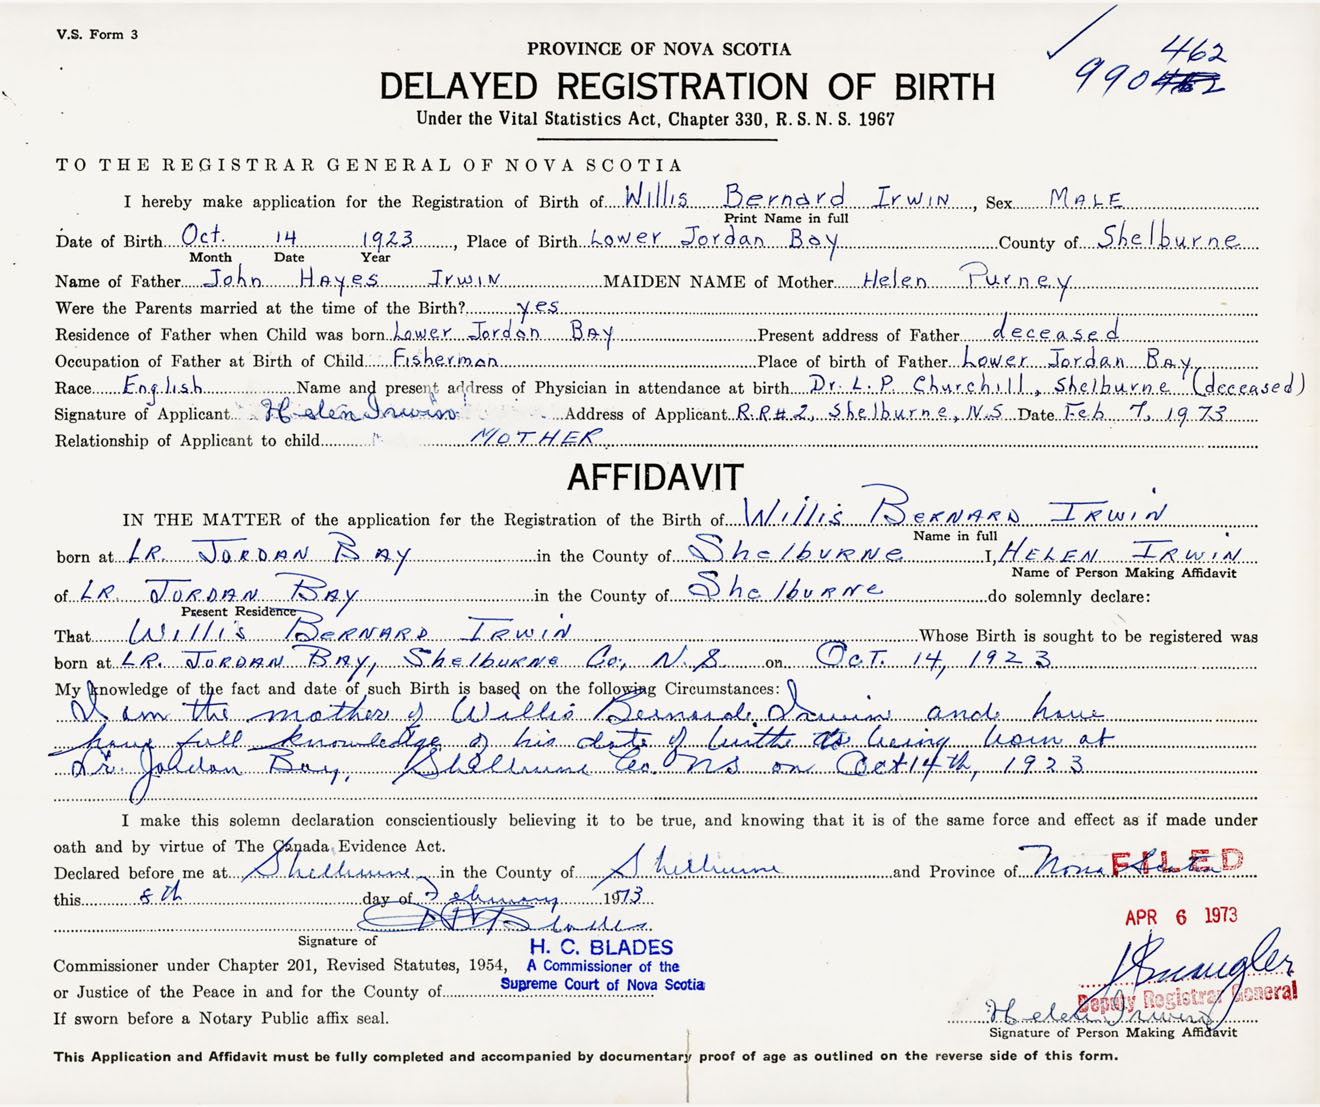 V.S. Form 3
462
990
PROVINCE OF NOVA SCOTIA
DELAYED REGISTRATION OF BIRTH
Under the Vital Statistics Act, Chapter 330, R. S. N. S. 1967
TO THE REGISTRAR GENERAL OF NOVA SCOTIA
I hereby make application for the Registration of Birth of Willis Bernard Irwin, Sex MALE
Print Name in full
Date of Birth Oct. 14 1923, Place of Birth Lower Jordan Bay County of Shelburne
Month Date Year
Name of Father John Hayes Irwin MAIDEN NAME of Mother Helen Purney
Were the Parents married at the time of the Birth? yes
Residence of Father when Child was born Lower Jordan Bay Present address of Father deceased
Occupation of Father at Birth of Child Fisherman Place of birth of Father Lower Jordan Bay
Race English Name and present address of Physician in attendance at birth Dr. L. P. Churchill, Shelburne (deceased)
Signature of Applicant Helen Irwin Address of Applicant R.R#2, Shelburne, N.S Date Feb 7, 1973
Relationship of Applicant to child MOTHER
AFFIDAVIT
IN THE MATTER of the application for the Registration of the Birth of Willis BERNARD IRWIN
Name in full
born at LR. JORDAN BAY in the County of Shelburne I, HELEN IRWIN
Name of Person Making Affidavit
of LR. JORDAN BAY in the County of Shelburne do solemnly declare:
Present Residence
That Willis BERNARD IRWIN Whose Birth is sought to be registered was
born at LR. JORDAN BAY, Shelburne Co, N.S on Oct. 14, 1923
My knowledge of the fact and date of such Birth is based on the following Circumstances:
I am the mother of Willis Bernard Irwin and have
have full knowledge of his date of birth as being born at
Lr. Jordan Bay, Shelburne Co. NS on Oct 14th, 1923
I make this solemn declaration conscientiously believing it to be true, and knowing that it is of the same force and effect as if made under
oath and by virtue of The Canada Evidence Act.
Declared before me at Shelburne in the County of Shelburne and Province of Nova Scotia
FILED
this 8th day of February 1973
APR 6 1973
Signature of
H. C. BLADES
Commissioner under Chapter 201, Revised Statutes, 1954, A Commissioner of the
Supreme Court of Nova Scotia
or Justice of the Peace in and for the County of
Deputy Registrar General
If sworn before a Notary Public affix seal.
Helen Irwin
Signature of Person Making Affidavit
This Application and Affidavit must be fully completed and accompanied by documentary proof of age as outlined on the reverse side of this form.